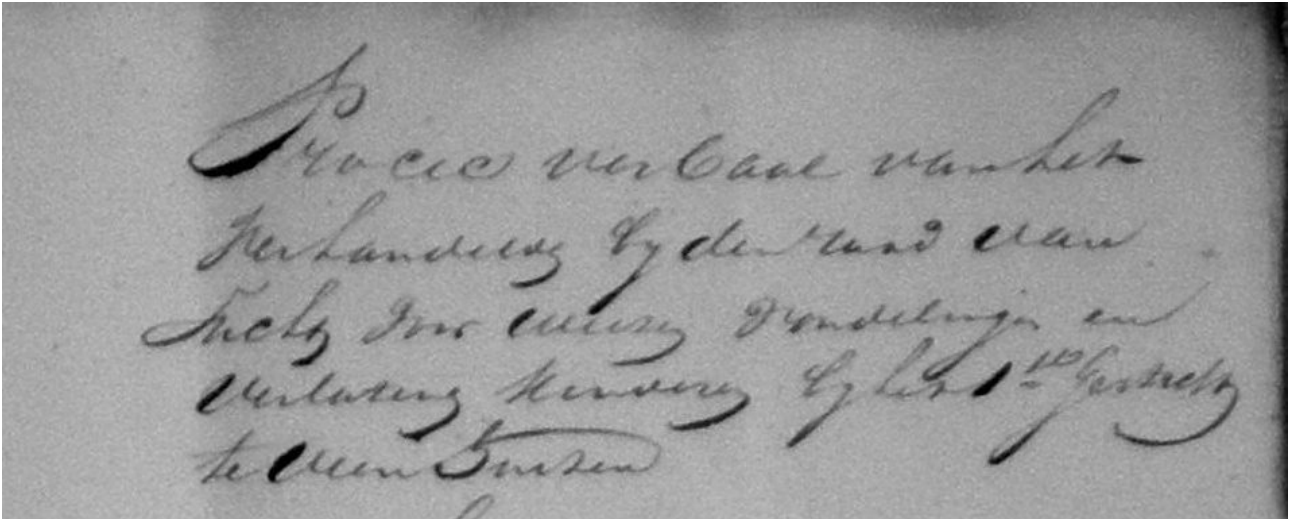 Proces verbaal van het
Verhandeld by den raad van
Tucht voor weezen vondelingen en
verlatene kinderen by het 1ste Gesticht
te Veenhuizen